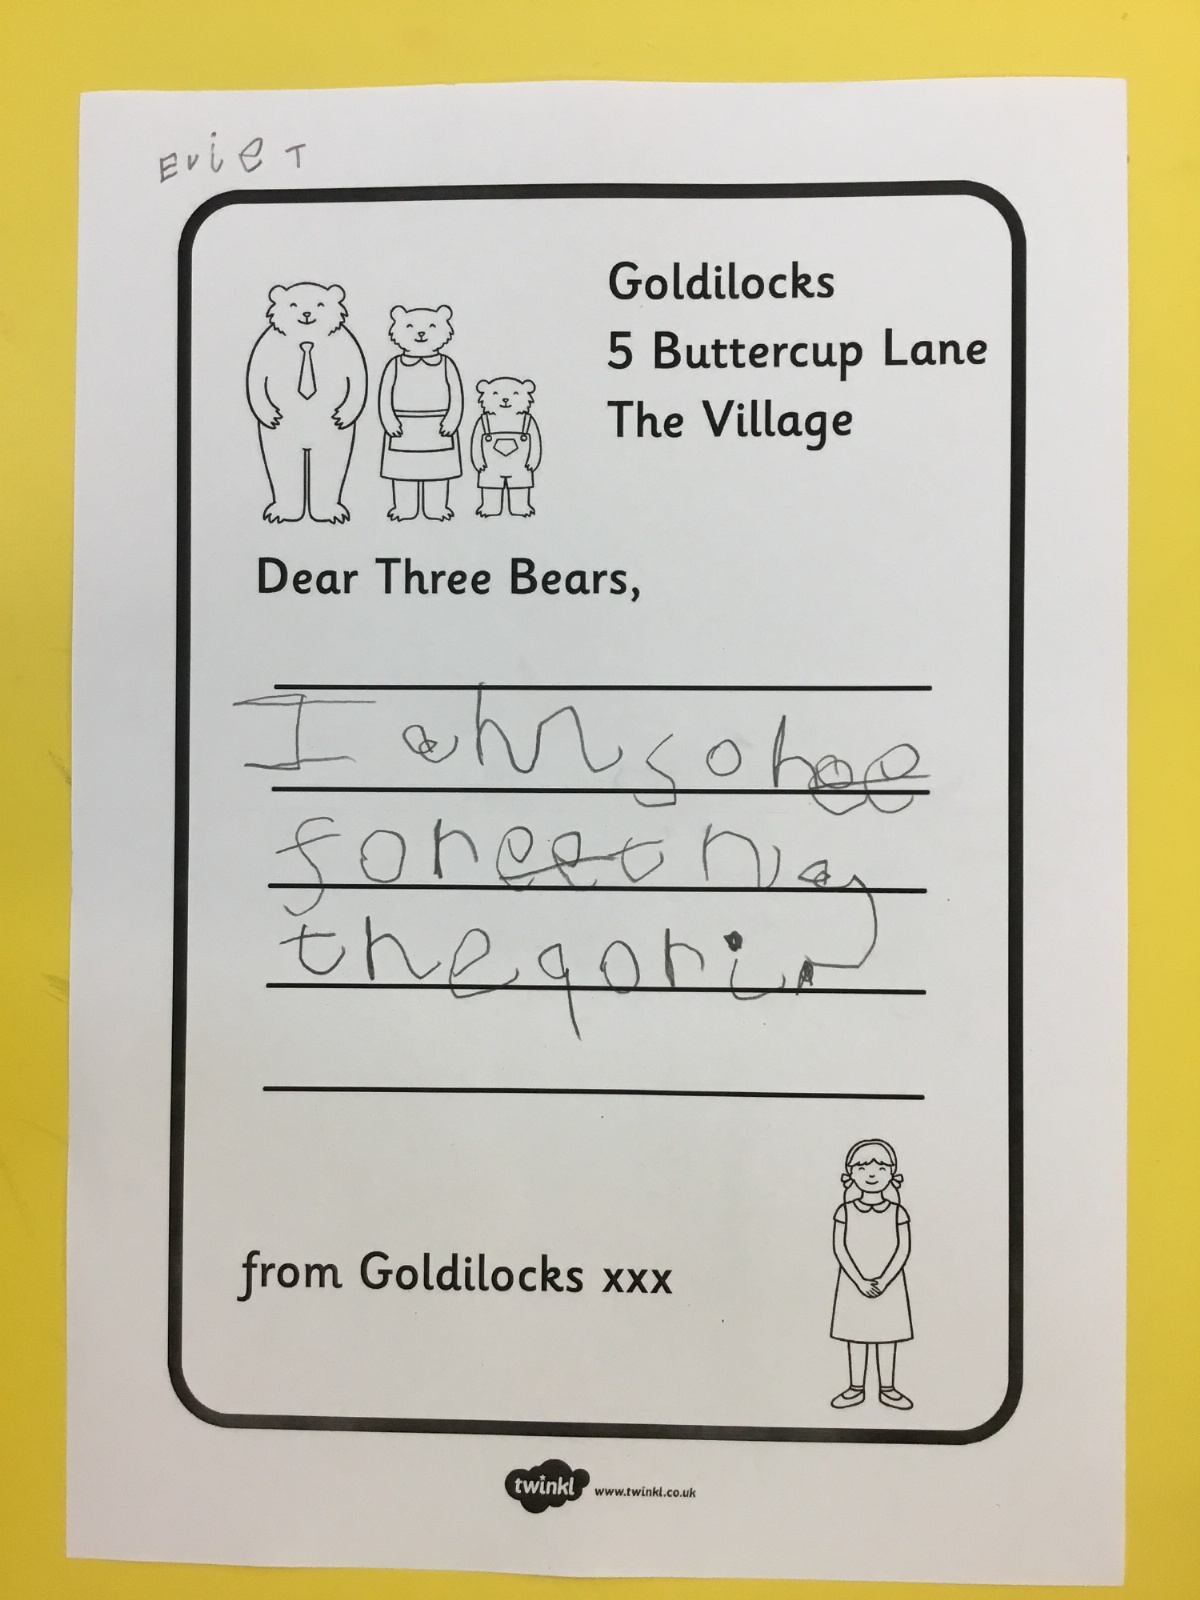 Evie T
Goldilocks
5 Buttercup Lane
The Village
Dear Three Bears,
I am so
for
the
from Goldilocks xxx
twinkl www.twinkl.co.uk